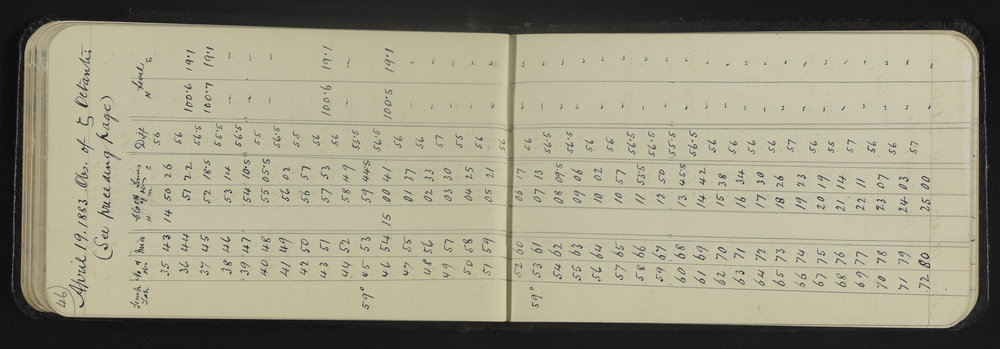 46
April 19. 1883. Obs. of ξ Octantis
(See preceding page)
Temp Fah No of Mic Clock Timing Diff Level
H m s N S
35 43 14 50 26 56
36 44 51 22 56 100.6 19.1
37 45 52 18.5 56.5 100.7 19.1
38 46 53 14 55.5 " "
39 47 54 10.5 56.5 " "
40 48 55 05.5 55 " "
41 49 56 02 56.5 " "
42 50 56 57 55 " "
43 51 57 53 56 100.6 19.1
44 52 58 49 56 " "
59° 45 53 59 44.5 55.5
46 54 15 00 41 56.5 100.5 19.1
47 55 01 37 56 " "
48 56 02 33 56 " "
49 57 03 30 57 " "
50 58 04 25 55 " "
51 59 05 21 56 " "
52 60 06 17 56 " "
59° 53 61 07 13 56 " "
54 62 08 09.5 56.5 " "
55 63 09 06 56.5 " "
56 64 10 02 56 " "
57 65 10 57 55 " "
58 66 11 53.5 56.5 " "
59 67 12 50 56.5 " "
60 68 13 45.5 55.5 " "
61 69 14 42 56.5 " "
62 70 15 38 56 " "
63 71 16 34 56 " "
64 72 17 30 56 " "
65 73 18 26 56 " "
66 74 19 23 57 " "
67 75 20 19 56 " "
68 76 21 14 55 " "
69 77 22 11 57 " "
70 78 23 07 56 " "
71 79 24 03 56 " "
72 80 25 00 57 " "